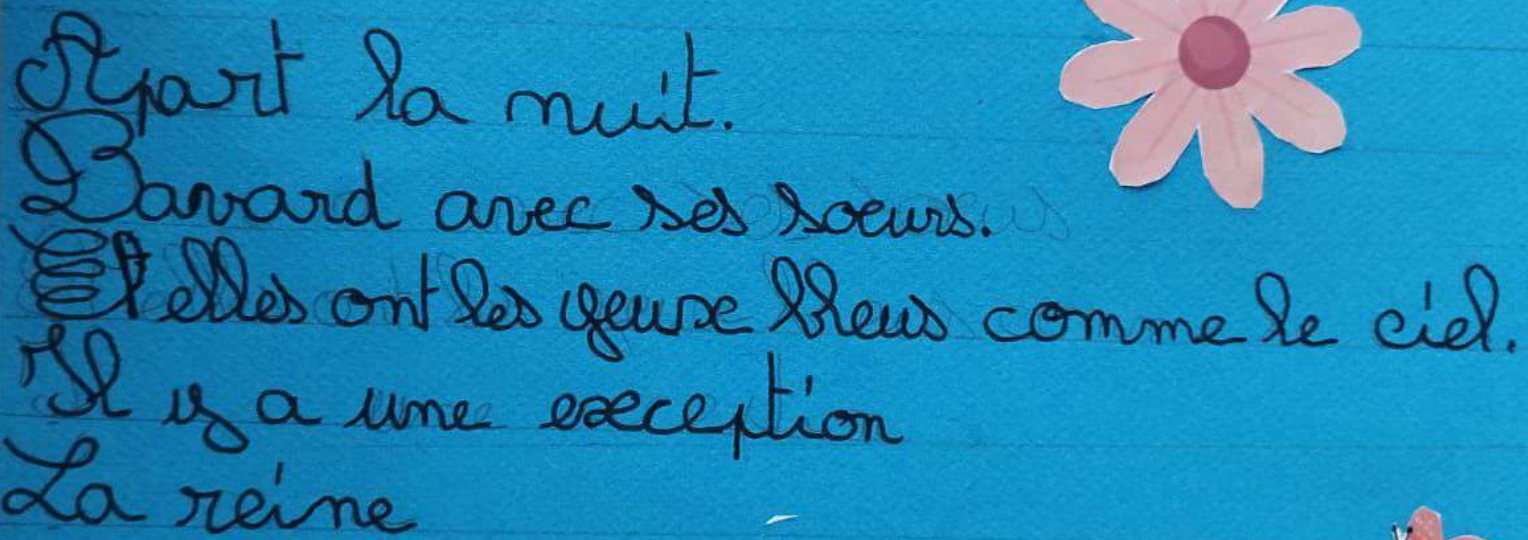 Apart la nuit.
Bavard avec ses soeurs.
Et elles ont les yeuxe bleus comme le ciel.
Il y a une exception
La reine